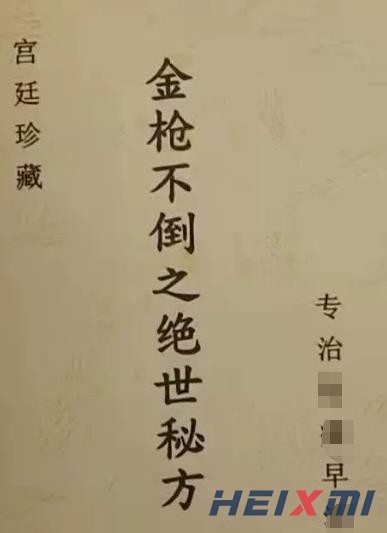 宫廷珍藏
金枪不倒之绝世秘方
专治
早
HEIXMI